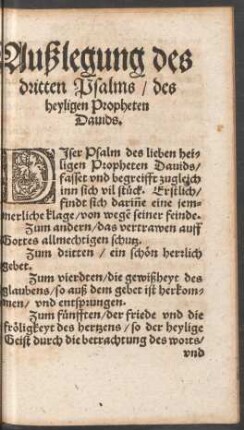 Außlegung des
dritten Psalms / des
heyligen Propheten
Dauids.
DIser Psalm des lieben hei-
ligen Propheten Dauids /
fasset vnd begreifft zugleich
inn sich vil stück. Erstlich /
findt sich dariñe eine jem-
merliche klage / von wegẽ seiner feinde.
Zum andern / das vertrawen auff
Gottes allmechtigen schutz.
Zum dritten / ein schön hertlich
gebet.
Zum vierdten / die gewißheyt des
glaubens / so auß dem gebet ist herkom-
men / vnd entsprungen.
Zum fünfften / der friede vnd die
fröligkeyt des hertzens / so der heylige
Geist durch die betrachtung des worts /
vnd